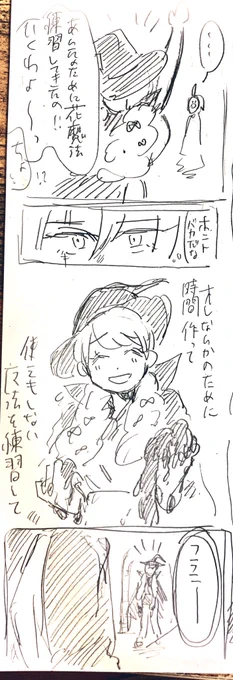 ・・・
あんたのために花魔法
練習してきたの!!
いくわよ〜〜
ちょ
!?
ホント
バカだな
オレなんかのために
時間 作って
使えもしない
魔法を練習して
フフフ